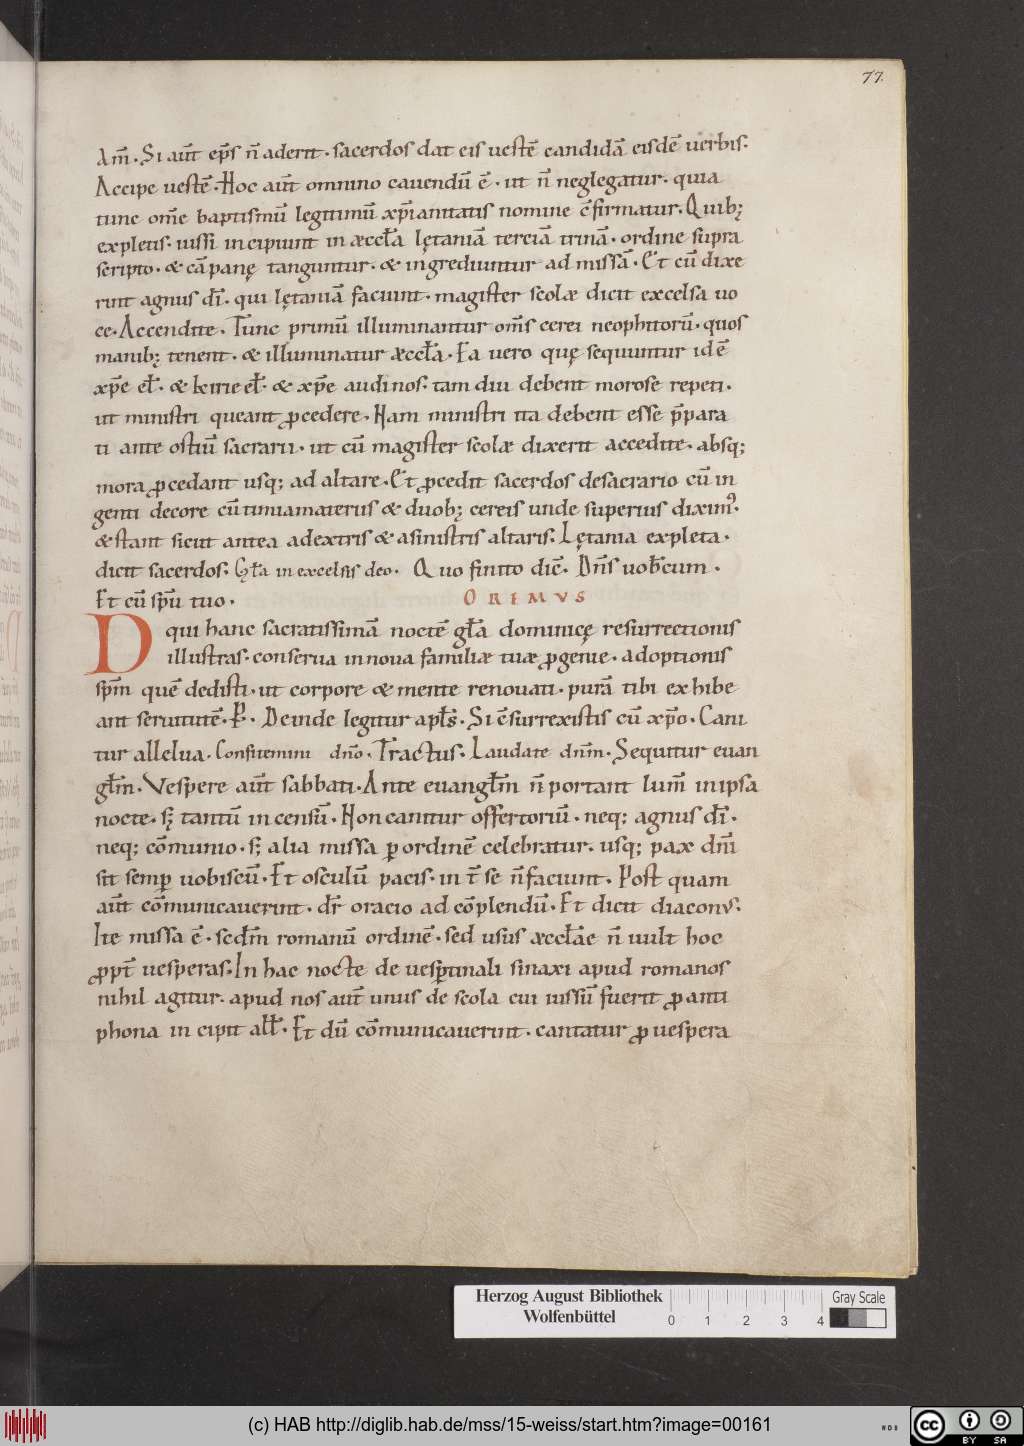 77.
Am̄. Si aut̄ ep̄s n̄ aderit. sacerdos dat eis uestē candidā eisdē uerbis.
Accipe uestē. Hoc aut̄ omnino cauendū ē. ut n̄ neglegatur. quia
tunc om̄e baptismū legitimū xp̄ianitatis nomine c̄firmatur. Quib;
expletis. iussi incipiunt in æccl̄a lętaniā terciā trinā. ordine supra
scripto. & cāpanę tanguntur. & ingrediuntur ad missā. Et cū dixe
rint agnus dī. qui lętaniā faciunt. magister scolæ dicit excelsa uo
ce. Accendite. Tunc primū illuminantur om̄s cerei neophitorū. quos
manib; tenent. & illuminatur æccl̄a. Ea uero quę sequuntur idē
xp̄e el̄. & kirie el̄. & xp̄e audi nos. tam diu debent morose repeti.
ut ministri queant ꝓcedere. Nam ministri ita debent esse p̄para
ti ante ostiū sacrarii. ut cū magister scolæ dixerit accedite. absq;
mora ꝓcedant usq; ad altare. Et ꝓcedit sacerdos desacrario cū in
genti decore cū timiamateriis & duob; cereis unde superius diximꝰ.
& stant sicut antea adextris & asinistris altaris. Lętania expleta.
dicit sacerdos. Gl̄a in excelsis deo. Quo finito dic̄. Dn̄s uob̄cum.
Et cū sp̄u tuo. OREMVS
D qui hanc sacratissimā noctē gl̄a dominicę resurrectionis
illustras. conserua innoua familiæ tuæ ꝓgenie. adoptionis
sp̄m quē dedisti. ut corpore & mente renouati. purā tibi exhibe
ant seruitutē. P̄. Deinde legitur apl̄s. Si c̄surrexistis cū xp̄o. Cani
tur allelua. Confitemini dn̄o. Tractus. Laudate dn̄m. Sequitur euan
gl̄m. Vespere aut̄ sabbati. Ante euangl̄m n̄ portant lum̄ inipsa
nocte. sꝫ tantū incensū. Non canitur offertoriū. neq; agnus dī.
neq; cōmunio. sꝫ alia missa ꝑ ordinē celebratur. usq; pax dn̄i
sit semꝑ uobiscū. Et osculū pacis. in t̄ se n̄ faciunt. Post quam
aut̄ cōmunicauerint. dr̄ oracio ad cōplendū. Et dicit diaconus.
Ite missa ē. scdm̄ romanū ordinē. sed usus æccl̄ae n̄ uult hoc
ꝓpt̄ uesperas. In hac nocte de uesꝑtinali sinaxi apud romanos
nihil agitur. apud nos aut̄ unus de scola cui iussū fuerit ꝓ anti
phona incipit all̄. Et dū cōmunicauerint. cantatur ꝓ uespera
Herzog August Bibliothek
Wolfenbüttel
0 1 2 3 4
Gray Scale
(c) HAB http://diglib.hab.de/mss/15-weiss/start.htm?image=00161
cc BY SA